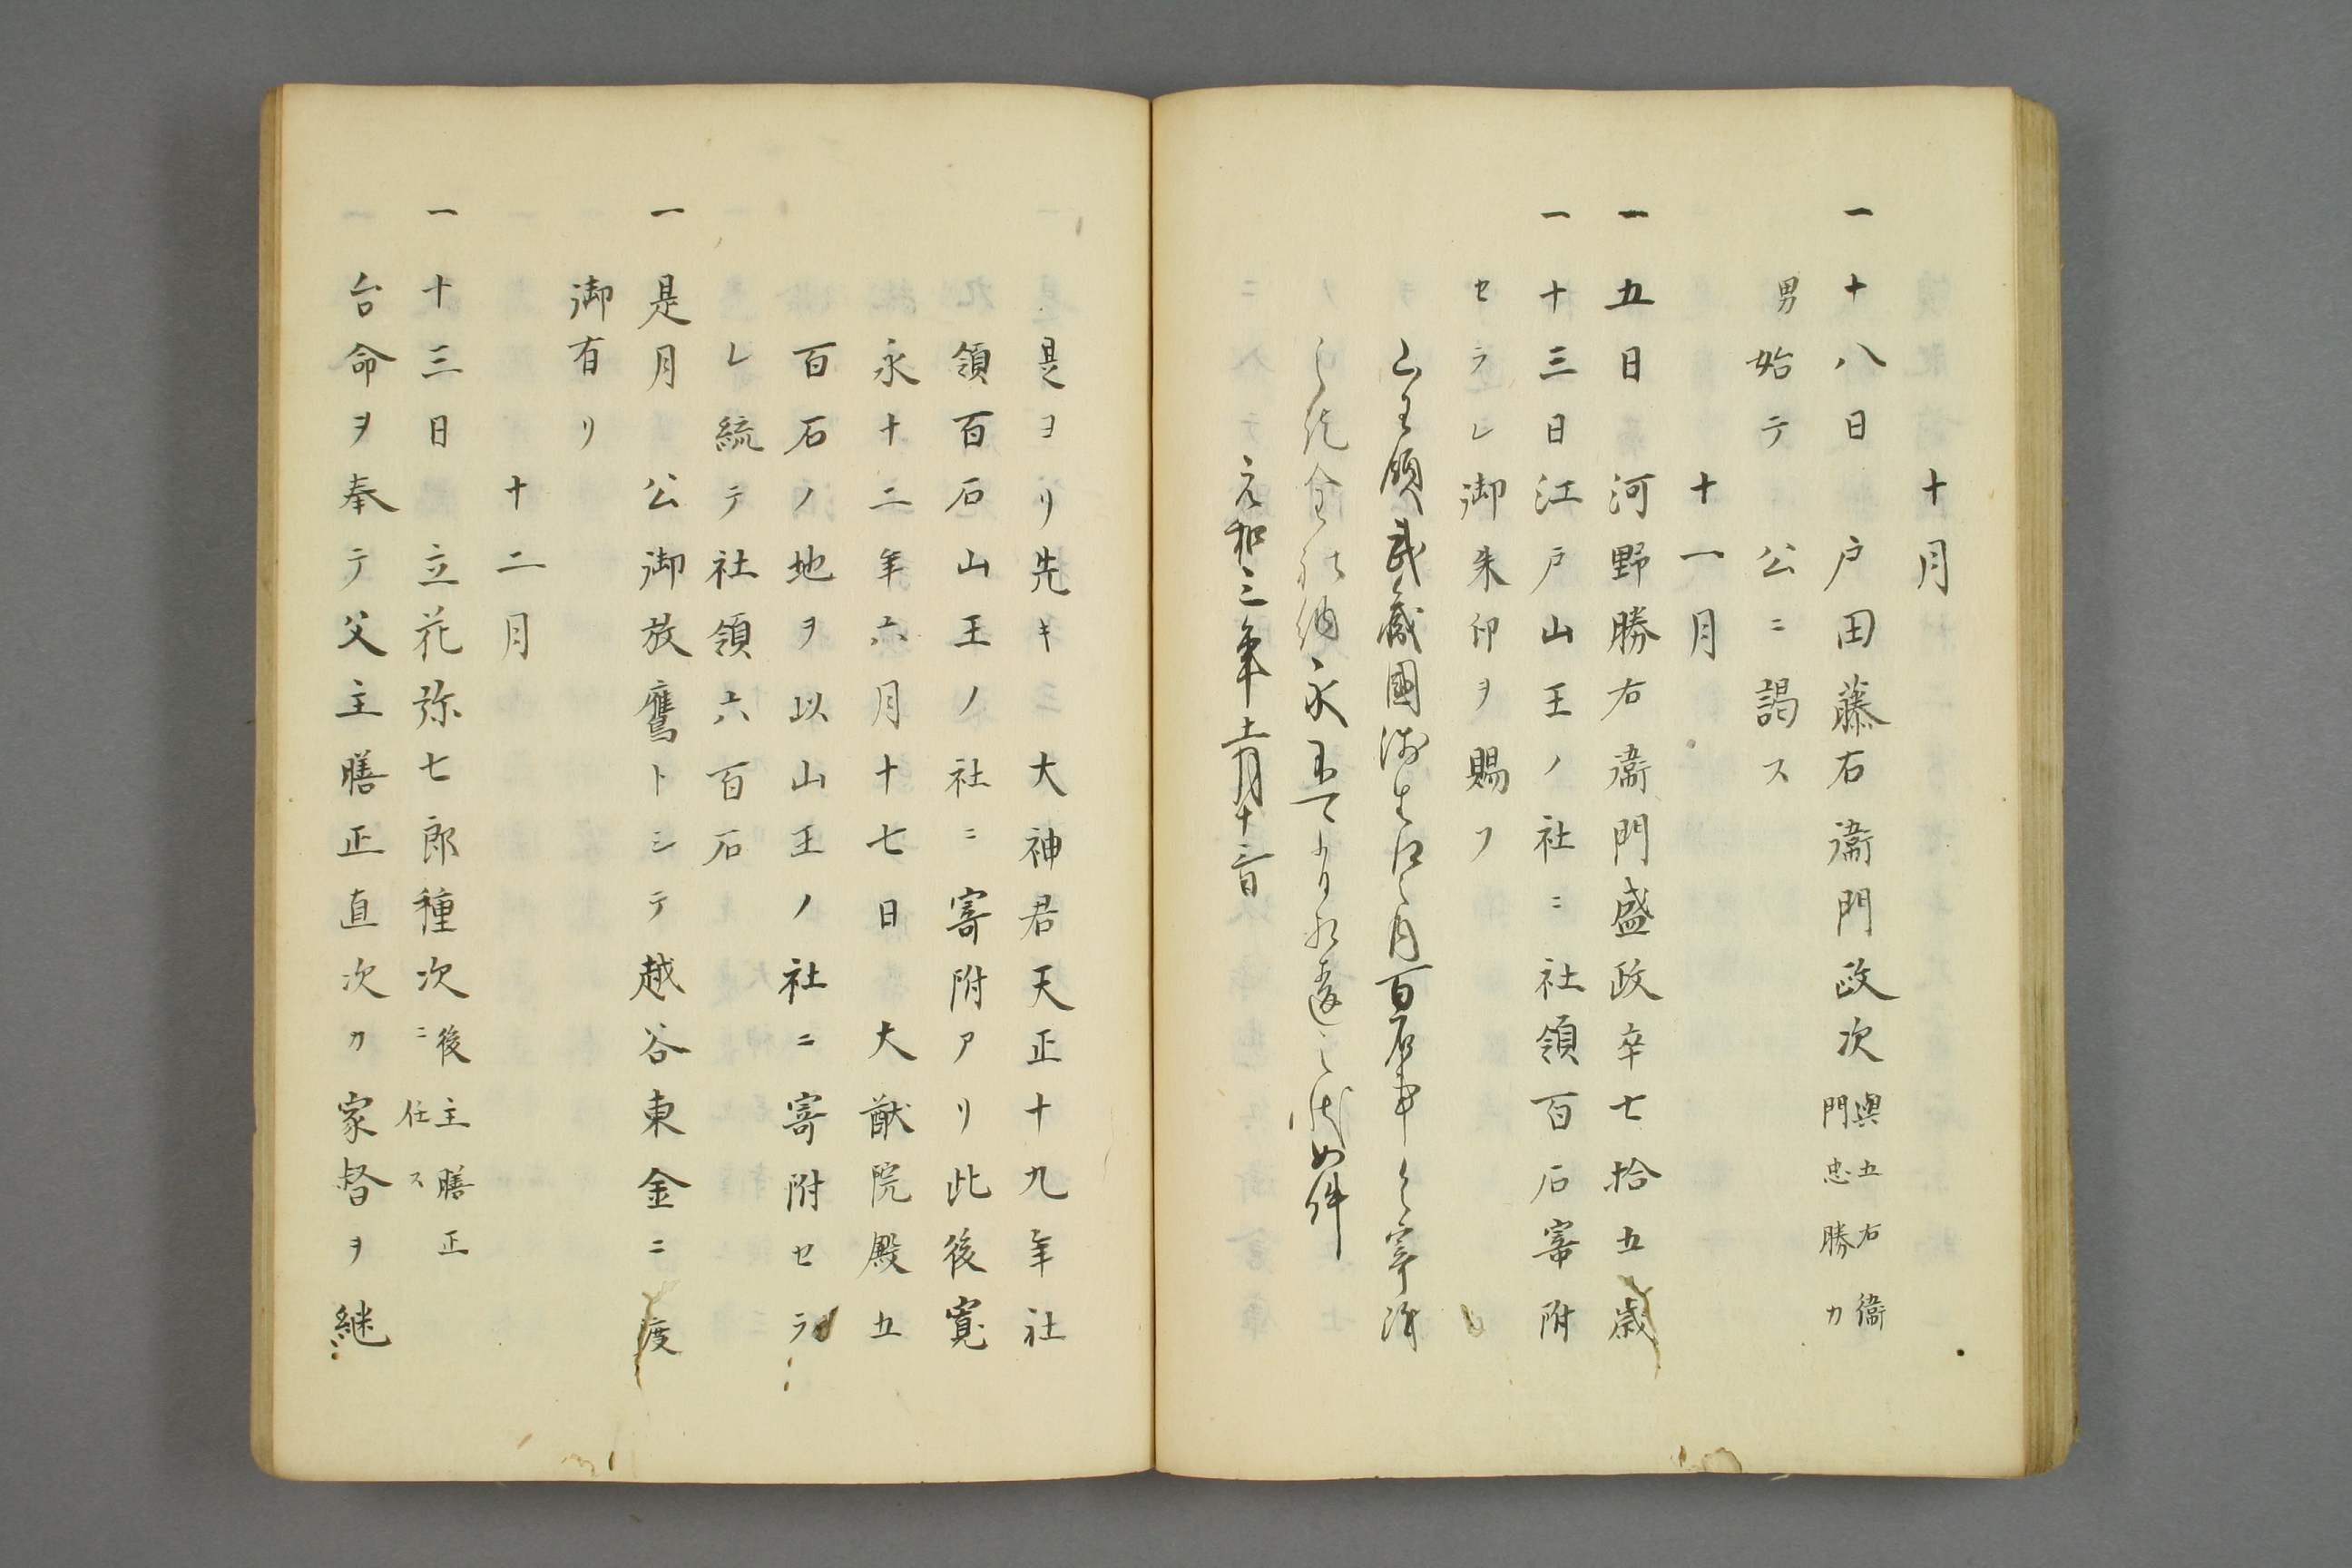 十月
一十八日戸田藤右衛門政次與五右衛
門忠勝カ
男始テ 公ニ謁ス
十一月
一五日 河野勝右衛門盛政卒七拾五歳
一十三日江戸山王ノ社ニ社領百石寄附
セラレ御朱印ヲ賜フ
山王領武蔵國 百石事
全社納永不可有相違之状如件
元和三年十一月十三日
是ヨリ先キ 大神君天正十九年社
領百石山王ノ社ニ寄附アリ此後寛
永十二年六月十七日 大猷院殿五
百石ノ地ヲ以山王ノ社ニ寄附セラ
レ統テ社領六百石
一是月 公御放鷹トシテ越谷東金ニ度
御有リ
十二月
一十三日 立花弥七郎種次後主膳正
ニ任ス
一台命ヲ奉テ父主膳正直次カ家督ヲ継